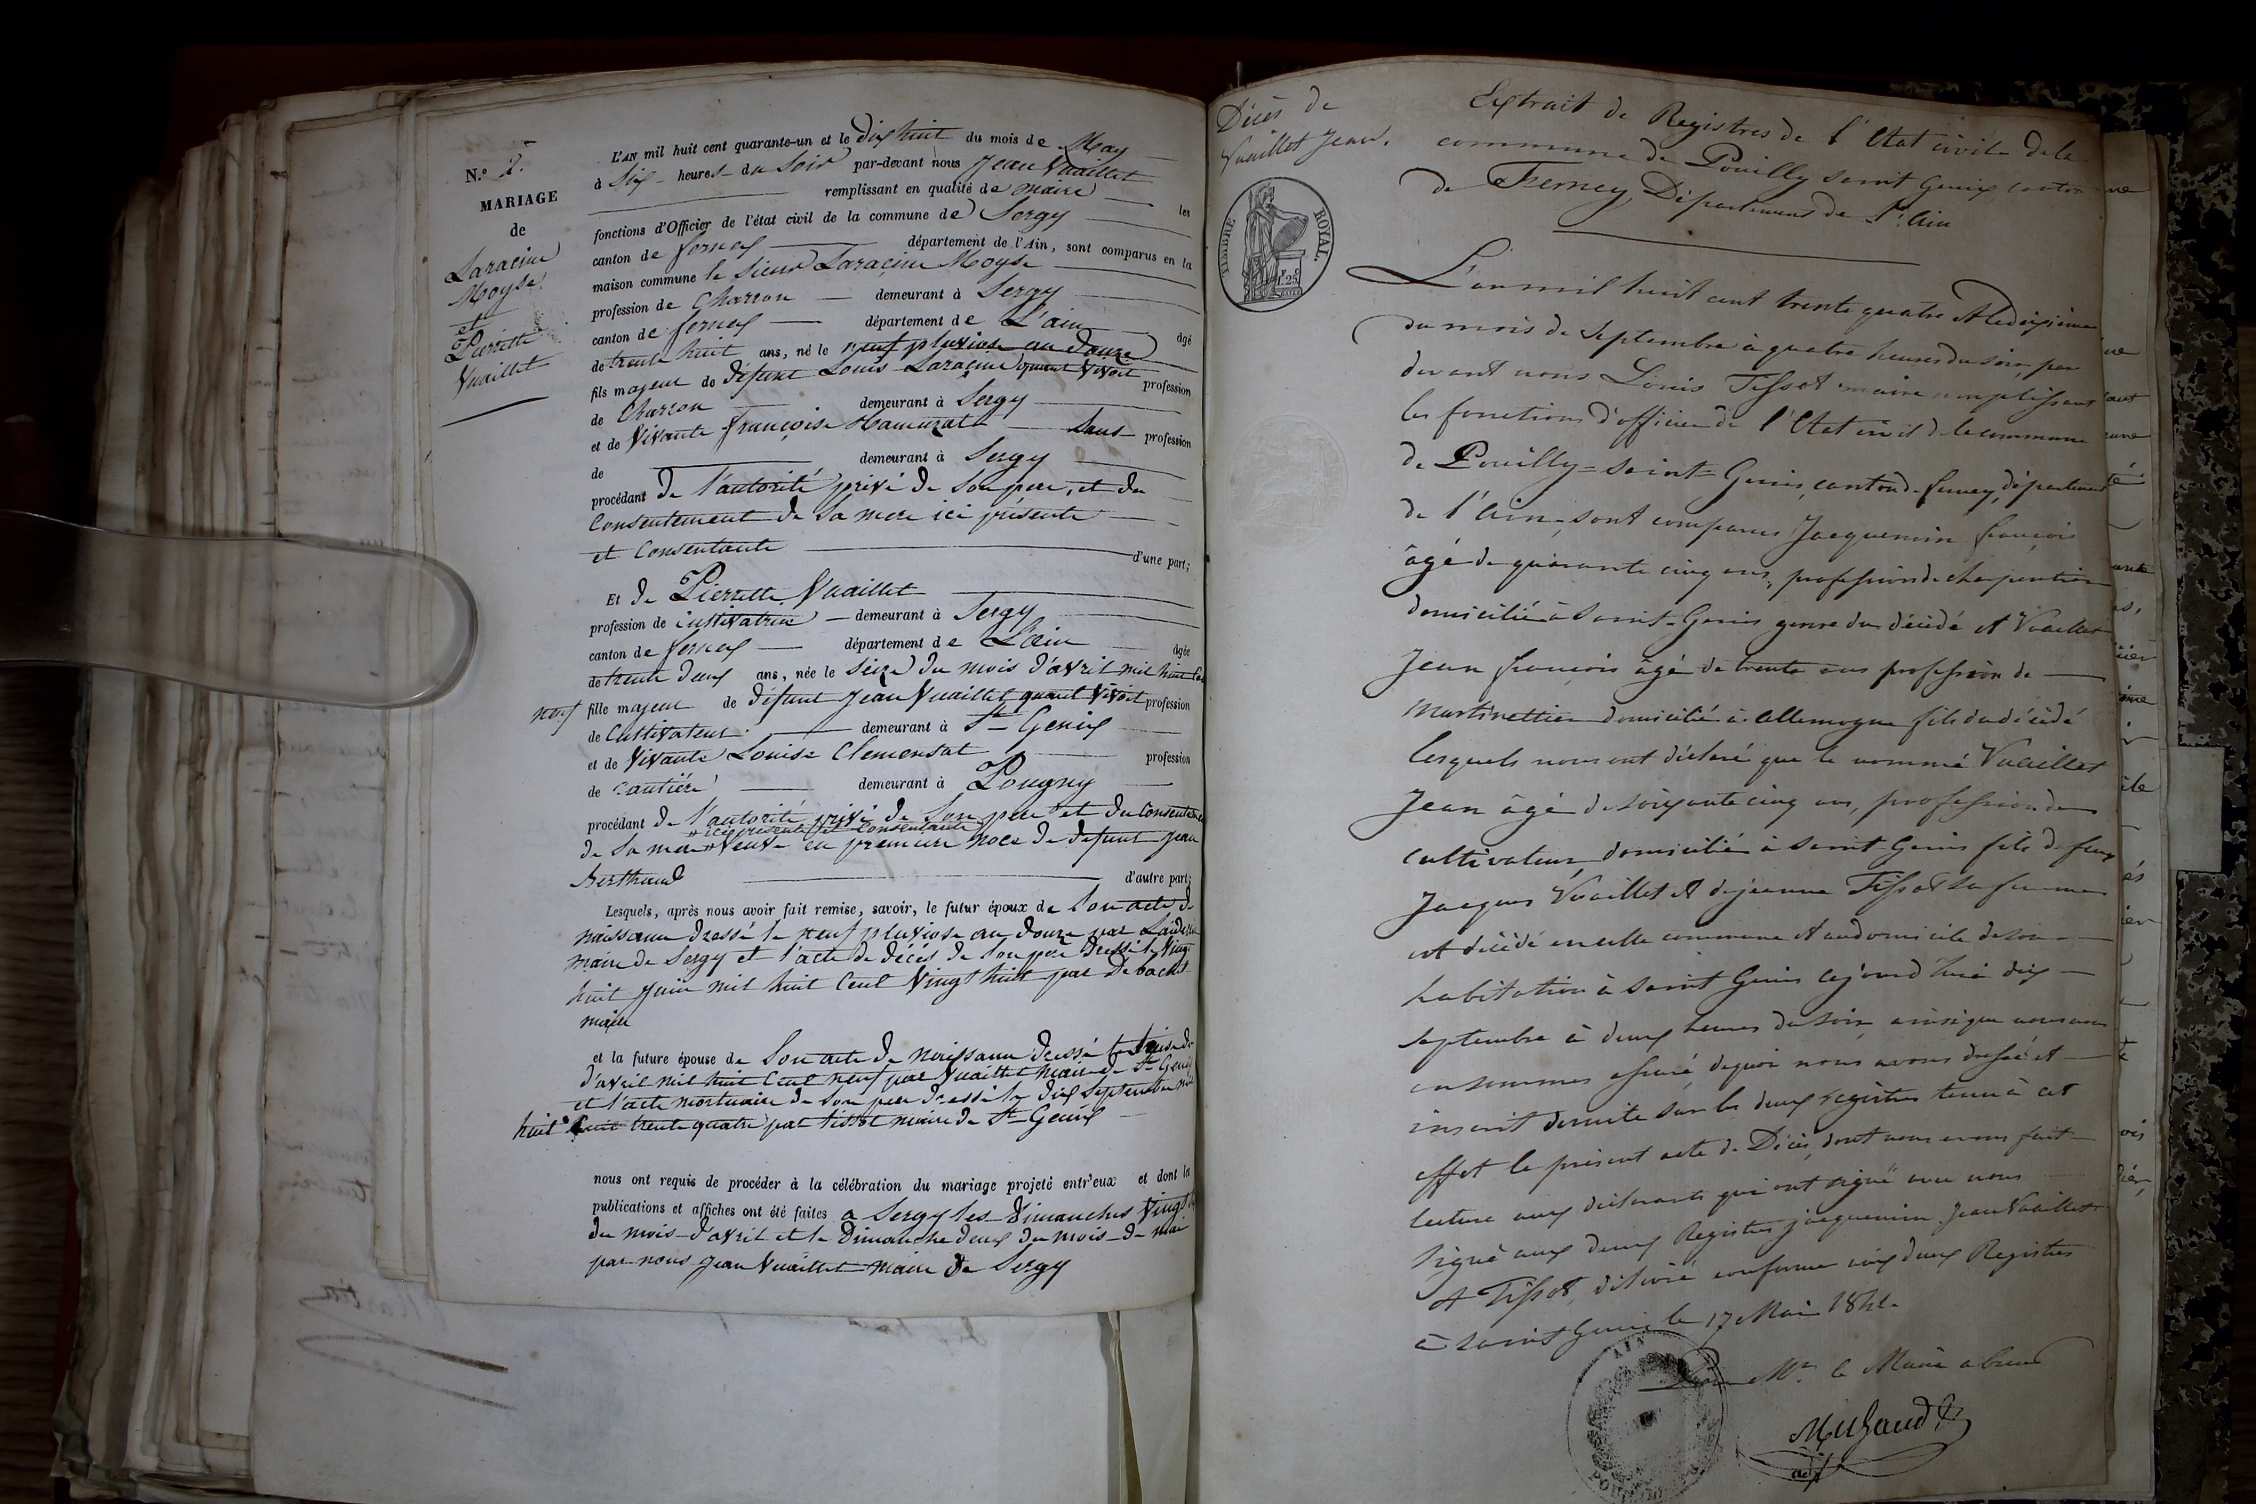 N.º 2.
MARIAGE
de
Laracine
Moyse
et
Pierrette
Vuaillet
L'AN mil huit cent quarante-un et le dix huit du mois de May
à Six heures du Soir par-devant nous Jean Vuaillet
remplissant en qualité de maire les
fonctions d'Officier de l'état civil de la commune de Sergy
canton de fernex département de l'Ain, sont comparus en la
maison commune le Sieur Laracine Moyse
profession de Charron demeurant à Sergy
canton de fernex département de L'ain âgé
de trente huit ans, né le neuf pluviose an douze
fils majeur de défunt Louis Laracine quant vivoit profession
de Charron demeurant à Sergy
et de vivante françoise Sans profession
de demeurant à Sergy
procédant de l'autorité privé de Son pere, et du
Consentement de Sa mere ici présente
et Consentante d'une part;
Et de Pierrette Vuaillet
profession de Cultivatrice demeurant à Sergy
canton de fernex département de L'ain âgée
de trente deux ans, née le Seize du mois d'avril mil huit Cent
neuf fille majeur de défunt Jean Vuaillet quant vivoit profession
de Cultivateur demeurant à St Genix
et de vivante Louise Clemensat profession
de demeurant à Pougny
procédant de l'autorité privé de Son pere et du Consentement
ici présente et Consentante
de Sa mere veuve en premiere noce de defunt Jean
Berthoud d'autre part;
Lesquels, après nous avoir fait remise, savoir, le futur époux de Son acte de
naissance dressé le neuf pluviose an douze par
maire de Sergy et l'acte de décés de Son pere dressé le vingt
huit Juin mil huit Cent vingt huit par
maire
et la future épouse de Son acte de naissance dressé le Seize
d'avril mil huit Cent neuf par Vuaillet maire de St Genix
et l'acte mortuaire de Son pere dressé le dix Septembre mil
huit Cent trente quatre par tissot maire de St Genix
nous ont requis de procéder à la célébration du mariage projeté entr'eux et dont les
publications et affiches ont été faites a Sergy les Dimanches vingt
du mois d'avril et le Dimanche deux du mois de mai
par nous Jean Vuaillet maire de Sergy
Décès de
Vuaillet Jean.
TIMBRE ROYAL.
Extrait de Registres de l'Etat civil de la
commune de Pouilly saint Genix canton
de Ferney, Département de l'Ain
L'an mil huit cent trente quatre et le dixième
du mois de Septembre à quatre heures du soir, par
devant nous Louis Tissot maire remplissant
les fonctions d'officier de l'Etat civil de la commune
de Pouilly-Saint-Genix, canton de ferney, département
de l'Ain, sont comparus Jacquemin françois
âgé de quarante cinq ans, profession de charpentier
domicilié à Saint-Genix gendre du décédé et Vuaillet
Jean françois âgé de trente ans profession de
Martinettier domicilié à Allemogne fils du décédé
lesquels nous ont déclaré que le nommé Vuaillet
Jean âgé de soixante cinq ans, profession de
cultivateur, domicilié à Saint Genix fils de feux
Jacques Vuaillet et de jeanne Tissot sa femme
est décédé en cette commune et au domicile de son
habitation à Saint Genix cejourd'hui dix
septembre à deux heures du soir, ainsi que nous nous
en sommes assuré dequoi nous avons dressé et
inscrit de suite sur les deux registres tenu à cet
effet le présent acte de Décès, dont nous avons fait
lecture aux déclarants qui ont signé avec nous
Signé aux deux Registres jacquemin Jean Vuaillet
et Tissot, délivré conforme aux deux Registres
à Saint Genix le 17 Mai 1841.
Pour Mr. le Maire absent
Michaud
adjt
AIN